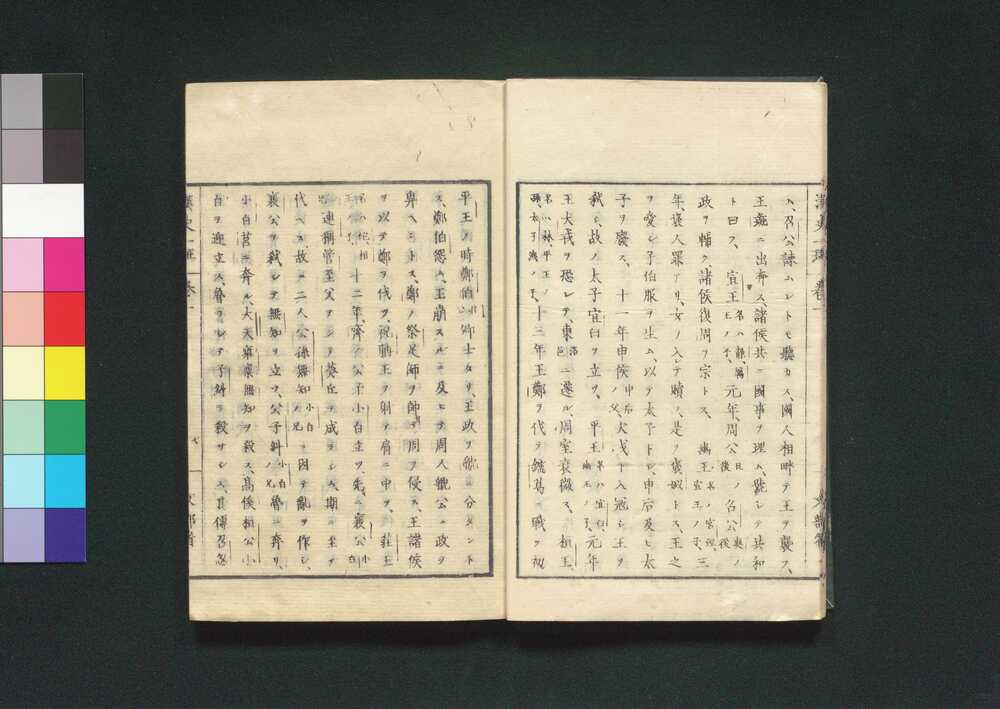 ス、召公諫ムレトモ聽カス、國人相畔テ王ヲ襲フ、
王彘ニ出奔ス、諸侯共ニ國事ヲ理ム、號シテ共和
ト曰フ、宣王名ハ靜、厲王ノ子、元年周公旦ノ後召公奭ノ後
政ヲ輔ク、諸侯復周ヲ宗トス、幽王名ハ宮湦、宣王ノ子、三
年褒人罪アリ、女ヲ入レテ贖フ、是ヲ褒姒トス、王之
ヲ愛シ子伯服ヲ生ム、以テ太子トシ、申后及ヒ太
子ヲ廢ス、十一年申侯申后ノ父、犬戎ト入冦シ王ヲ
弑シ、故ノ太子宜臼ヲ立ツ、平王名ハ宜臼、幽王ノ子、元年
王犬戎ヲ恐レテ、東洛邑ニ遷ル、周室衰微ス、桓王、
名ハ林、平王ノ孫、太子洩ノ子、十三年王鄭ヲ伐テ繻葛ニ戰フ初
平王ノ時鄭伯卿士タリ、王政ヲ虢ニ分タント
ス、鄭伯怨ム、王崩スルニ及ヒテ周人虢公ニ政ヲ
畀ヘントス、鄭ノ祭足師ヲ帥テ周ヲ侵ス、王諸侯
ヲ以テ鄭ヲ伐ツ、祝聃王ヲ射テ肩ニ中ツ、莊王
名ハ佗、桓王ノ子、十二年、齊ノ公子小白立ツ、先ニ襄公小白ノ兄
連稱管至父ヲシテ葵丘ヲ戍ラシム、期ニ至テ
代ヘス、故ニ二人公孫無知小白ノ兄ニ因テ亂ヲ作シ、
襄公ヲ弑シテ無知ヲ立ツ、公子糾小白ノ兄魯ニ奔リ、
小白莒ニ奔ル、大夫雍廩無知ヲ殺ス、高傒桓公小
白ヲ迎立ス、魯ヲシテ子糾ヲ殺サシム、其傅召忽
漢史一斑 卷一
七
文部省